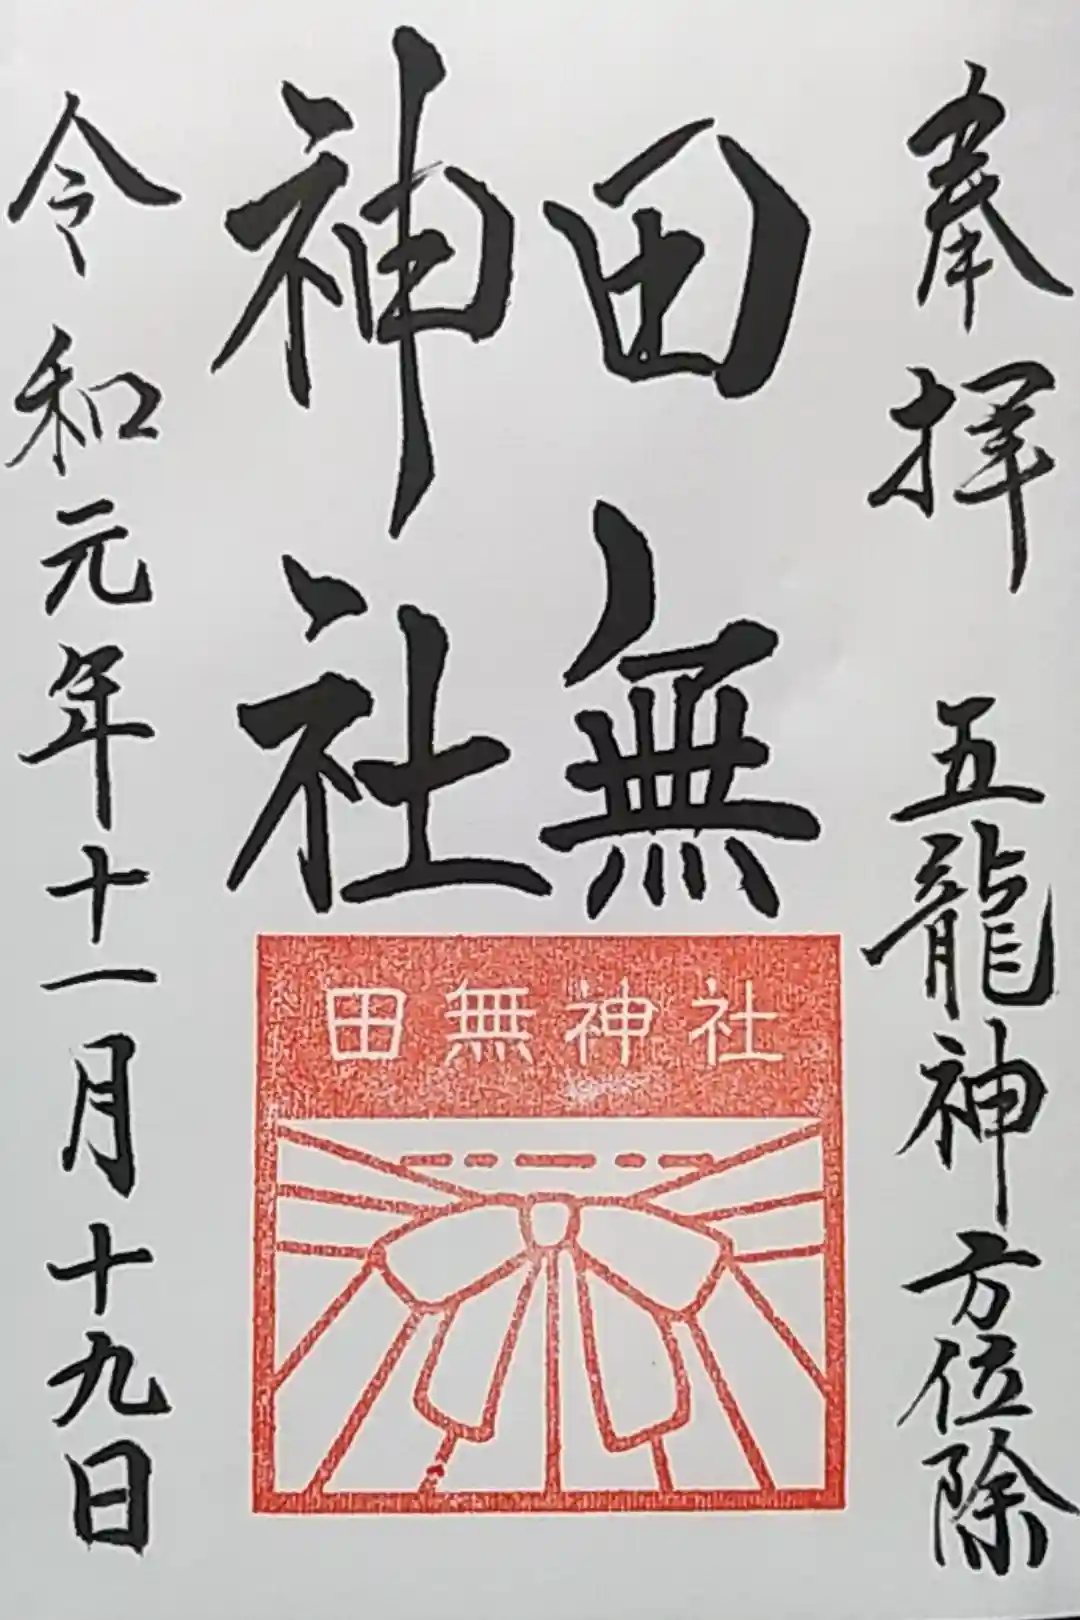 奉拝 五龍神方位除
田無
神社
令和元年十一月十九日
田無神社